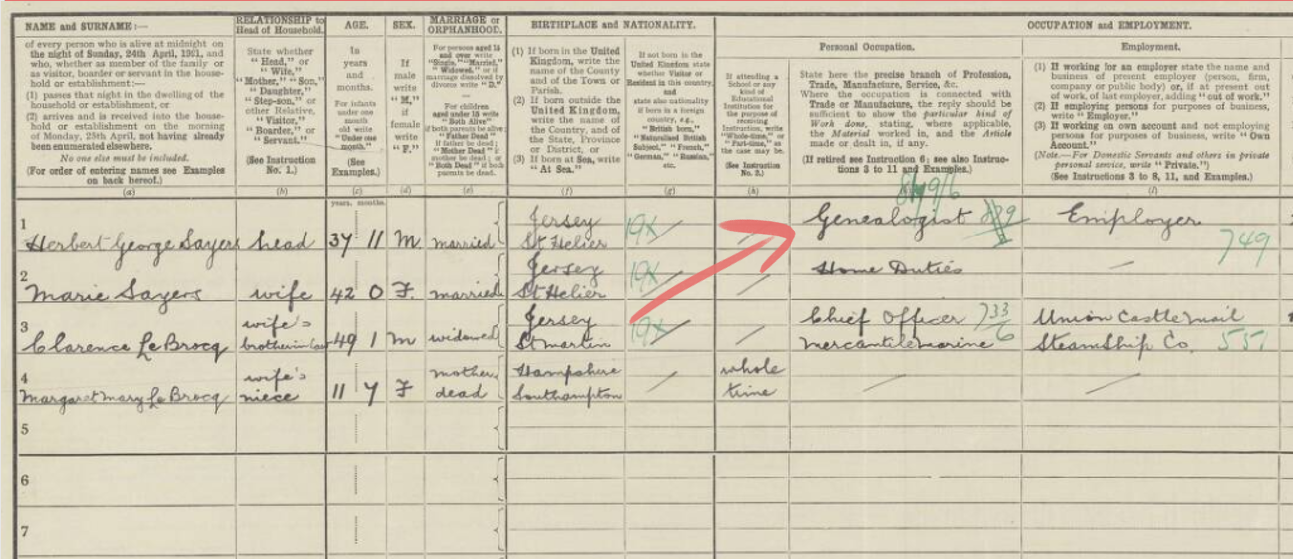 NAME and SURNAME :—
of every person who is alive at midnight on
the night of Sunday, 24th April, 1921, and
who, whether as member of the family or
as visitor, boarder or servant in the house-
hold or establishment:—
(1) passes that night in the dwelling of the
household or establishment, or
(2) arrives and is received into the house-
hold or establishment on the morning
of Monday, 25th April, not having already
been enumerated elsewhere.
No one else must be included.
(For order of entering names see Examples
on back hereof.)
(a)
RELATIONSHIP to
Head of Household.
State whether
"Head," or
"Wife,"
"Mother," "Son,"
"Daughter,"
"Step-son," or
other Relative,
"Visitor,"
"Boarder," or
"Servant."
(See Instruction
No. 1.)
(b)
AGE.
In
years
and
months.
For infants
under one
month
old write
"Under one
month."
(See
Examples.)
(c)
SEX.
If
male
write
"M,"
if
female
write
"F."
(d)
MARRIAGE or
ORPHANHOOD.
For persons aged 15
and over write
"Single," "Married,"
"Widowed," or if
marriage dissolved by
divorce write "D."
For children
aged under 15 write
"Both Alive"
if both parents be alive;
"Father Dead"
if father be dead;
"Mother Dead" if
mother be dead; or
"Both Dead" if both
parents be dead.
(e)
BIRTHPLACE and NATIONALITY.
(1) If born in the United
Kingdom, write the
name of the County
and of the Town or
Parish.
(2) If born outside the
United Kingdom,
write the name of
the Country, and of
the State, Province
or District, or
(3) If born at Sea, write
"At Sea."
(f)
If not born in the
United Kingdom state
whether Visitor or
Resident in this country,
and
state also nationality
if born in a foreign
country, e.g.,
"British born,"
"Naturalised British
Subject," "French,"
"German," "Russian,"
etc.
(g)
If attending a
School or any
kind of
Educational
Institution for
the purpose of
receiving
Instruction, write
"Whole-time," or
"Part-time," as
the case may be.
(See Instruction
No. 2.)
(h)
OCCUPATION and EMPLOYMENT.
Personal Occupation.
State here the precise branch of Profession,
Trade, Manufacture, Service, &c.
Where the occupation is connected with
Trade or Manufacture, the reply should be
sufficient to show the particular kind of
Work done, stating, where applicable,
the Material worked in, and the Article
made or dealt in, if any.
(If retired see Instruction 6; see also Instruc-
tions 3 to 11 and Examples.)
Employment.
(1) If working for an employer state the name and
business of present employer (person, firm,
company or public body) or, if at present out
of work, of last employer, adding "out of work."
(2) If employing persons for purposes of business,
write "Employer."
(3) If working on own account and not employing
persons for purposes of business, write "Own
Account."
(Note.—For Domestic Servants and others in private
personal service, write "Private.")
(See Instructions 3 to 8, 11, and Examples.)
(l)
years. months.
1
Herbert George Sayers head 37 11 M married Jersey
St Helier 19X Genealogist Employer
749
2
Marie Sayers wife 42 0 F. married Jersey
St Helier 19X Home Duties
3
Clarence Le Brocq wife's
brother in law 49 1 M widowed Jersey
St Martin 19X Chief Officer 733
mercantile marine 6 Union Castle Mail
SteamShip Co. 551
4
Margaret Mary Le Brocq wife's
niece 11 7 F mother
dead Hampshere
Southampton whole
time
5
6
7